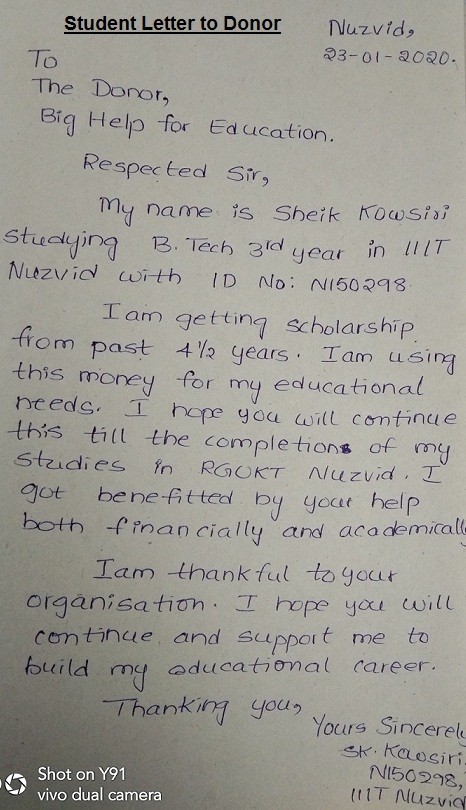 Student Letter to Donor
Nuzvid,
23-01-2020.
To
The Donor,
Big Help for Education.
Respected Sir,
My name is Sheik Kowsiri
studying B. Tech 3rd year in IIIT
Nuzvid with ID No: N150298
I am getting scholarship
from past 4 1/2 years. I am using
this money for my educational
needs. I hope you will continue
this till the completion of my
studies in RGUKT Nuzvid. I
got benefitted by your help
both financially and academically
I am thankful to your
organisation. I hope you will
continue and support me to
build my educational career.
Thanking you,
Yours Sincerely
SK. Kowsiri,
N150298,
IIIT Nuzvid
Shot on Y91
vivo dual camera